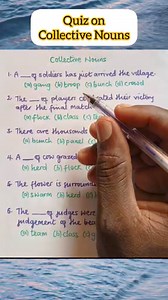 Quiz on
Collective Nouns
Collective Nouns
1. A __ of soldiers has just arrived the village.
(a) gang (b) troop (c) bunch (d) crowd
2. The __ of players celebrated their victory
after the final match.
(a) flock (b) class (c)
3. There are thousands
(a) bunch (b) panel (c)
4. A __ of cow grazed
(a) herd (b) flock (c)
5. The flower is surrounded
(a) swarm (b) herd (c)
6. The __ of judges were
judgement of the
(a) team (b) class (c)